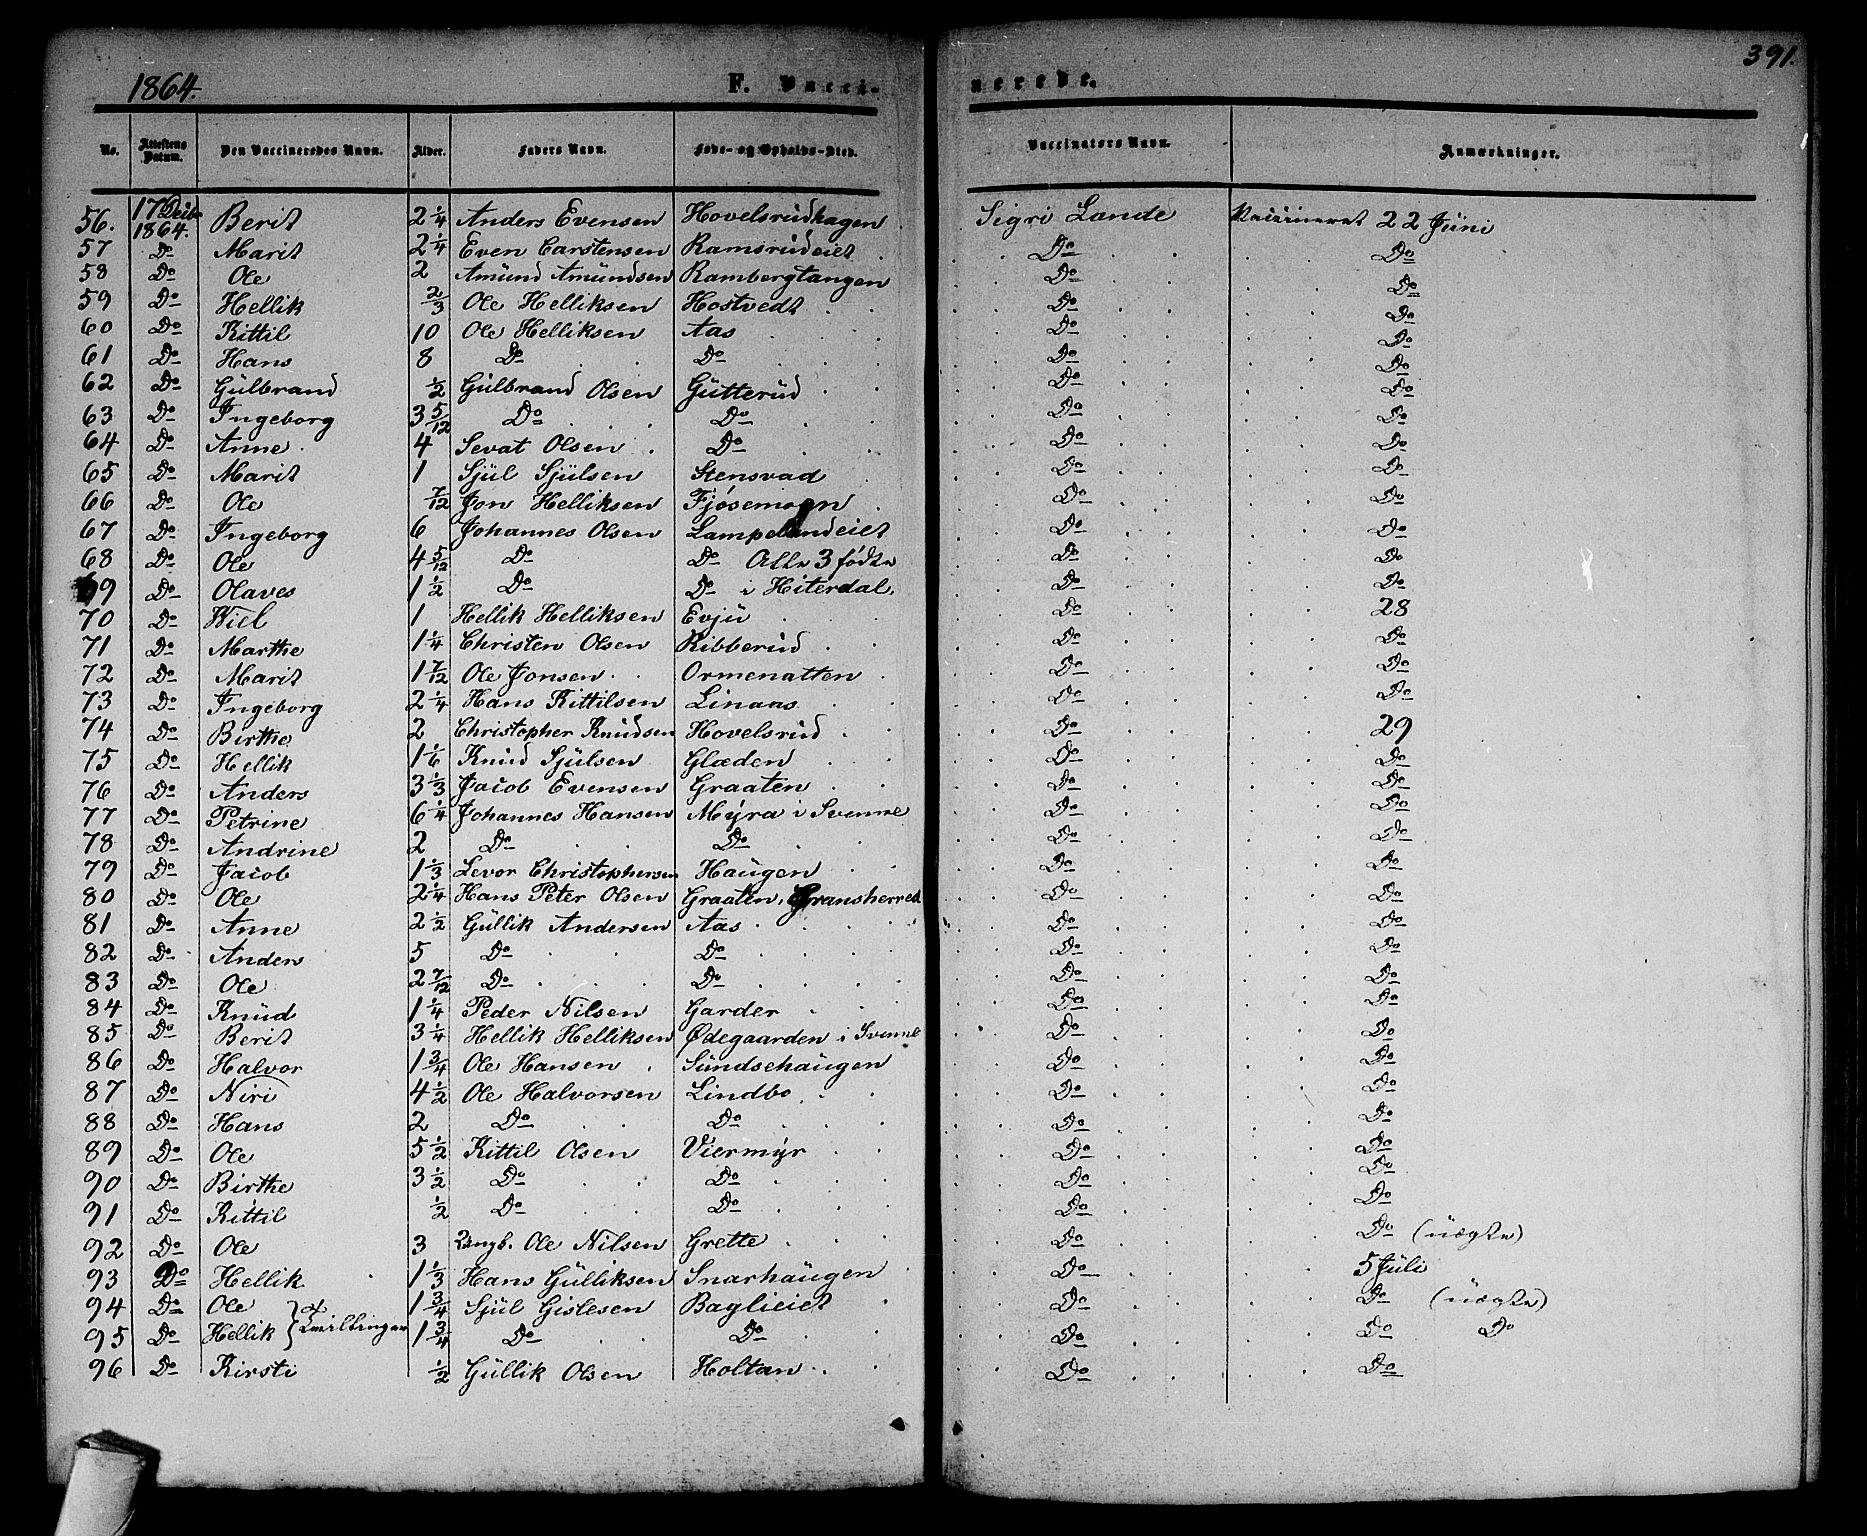 391.
1864. F. Vacci- nerede.
No. Attestens Datum. Den Vaccineredes Navn. Alder. Faders Navn. Føde- og Opholds-Sted. Vaccinators Navn. Anmærkninger.
56. 17 Decbr 1864. Berit 2 1/4 Anders Evensen Hovelsrüdhagen Sigri Lande Vaccineret 22 Jüni
57 Do Marit 2 1/4 Even Carstensen Ramsrüdeiet Do Do
58 Do Ole 2 Amünd Amündsen Rambergtangen Do Do
59 Do Hellik 2/3 Ole Helliksen Hostvedt Do Do
60 Do Kittil 10 Ole Helliksen Aas Do Do
61 Do Hans 8 Do Do Do Do
62 Do Gülbrand 1/2 Gülbrand Olsen Gütterüd Do Do
63 Do Ingeborg 3 5/12 Do Do Do Do
64 Do Anne 4 Sevat Olsen Do Do Do
65 Do Marit 1 Sjül Sjülsen Stensvad Do Do
66 Do Ole 7/12 Jon Helliksen Fjøsemoen Do Do
67 Do Ingeborg 6 Johannes Olsen Lampelandeiet Do Do
68 Do Ole 4 5/12 Do Do Alle 3 fødte Do Do
69 Do Olaves 1 1/2 Do Do i Hiterdal. Do Do
70 Do Kiel 1 Hellik Helliksen Evjü Do 28
71 Do Marthe 1 1/4 Christen Olsen Ribberüd Do Do
72 Do Marit 1 7/12 Ole Jonsen Ormenatten Do Do
73 Do Ingeborg 2 1/4 Hans Kittilsen Linaas Do Do
74 Do Birthe 2 Christopher Knüdsen Hovelsrüd Do 29
75 Do Hellik 1 1/6 Knüd Sjülsen Glæden Do Do
76 Do Anders 3 1/3 Jacob Evensen Graaten Do Do
77 Do Petrine 6 1/4 Johannes Hansen Mÿra i Svenne Do Do
78 Do Andrine 2 Do Do Do Do
79 Do Jacob 1 1/3 Levor Christophersen Haügen Do Do
80 Do Ole 2 1/4 Hans Peter Olsen Graaten, Gransherred Do Do
81 Do Anne 2 1/2 Güllik Andersen Aas Do Do
82 Do Anders 5 Do Do Do Do
83 Do Ole 2 7/12 Do Do Do Do
84 Do Knüd 1 1/4 Peder Nilsen Garder Do Do
85 Do Berit 3 1/4 Hellik Helliksen Ødegaarden i Svenne Do Do
86 Do Halvor 1 3/4 Ole Hansen Sündsehaügen Do Do
87 Do Niri 4 1/2 Ole Halvorsen Lindbo Do Do
88 Do Hans 2 Do Do Do Do
89 Do Ole 5 1/2 Kittil Olsen Viermÿr Do Do
90 Do Birthe 3 1/2 Do Do Do Do
91 Do Kittil 1/2 Do Do Do Do
92 Do Ole 3 Ungk. Ole Nilsen Grette Do Do (üægte)
93 Do Hellik 1 1/3 Hans Gülliksen Snarhaügen Do 5 Jüli
94 Do Ole } 1 3/4 Sjül Gislesen Baglieiet Do Do (üægte)
95 Do Hellik } Tvillinger 1 3/4 Do Do Do Do Do
96 Do Kirsti 1/2 Güllik Olsen Holtan Do Do